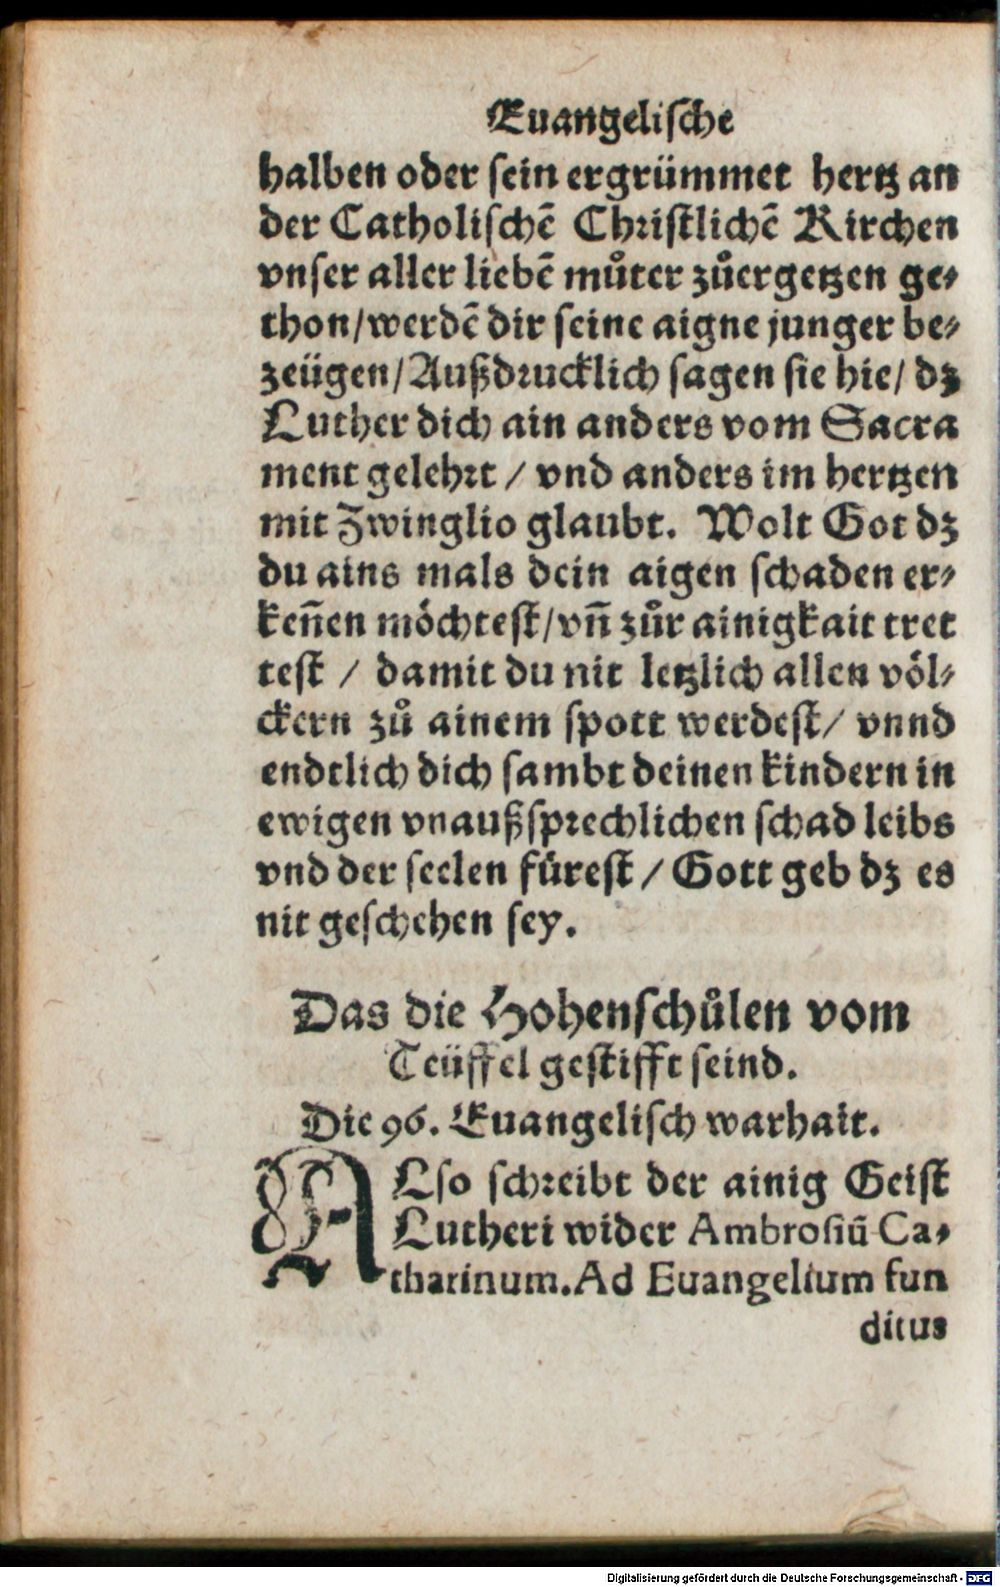 Euangelische
halben oder sein ergrümmet hertz an
der Catholischē Christlichē Kirchen
vnser aller liebē můter zůergetzen ge-
thon/werdē dir seine aigne junger be-
zeügen/Außdrucklich sagen sie hie/ dz
Luther dich ain anders vom Sacra
ment gelehrt / vnd anders im hertzen
mit Zwinglio glaubt. Wolt Got dz
du ains mals dein aigen schaden er-
keñen möchtest/vñ zůr ainigkait tret
test / damit du nit letzlich allen völ-
ckern zů ainem spott werdest/ vnnd
endtlich dich sambt deinen kindern in
ewigen vnaußsprechlichen schad leibs
vnd der seelen fürest / Gott geb dz es
nit geschehen sey.
Das die Hohenschůlen vom
Teüffel gestifft seind.
Die 96. Euangelisch warhait.
ALso schreibt der ainig Geist
Lutheri wider Ambrosiū Ca-
tharinum. Ad Euangelium fun
ditus
Digitalisierung gefördert durch die Deutsche Forschungsgemeinschaft - DFG